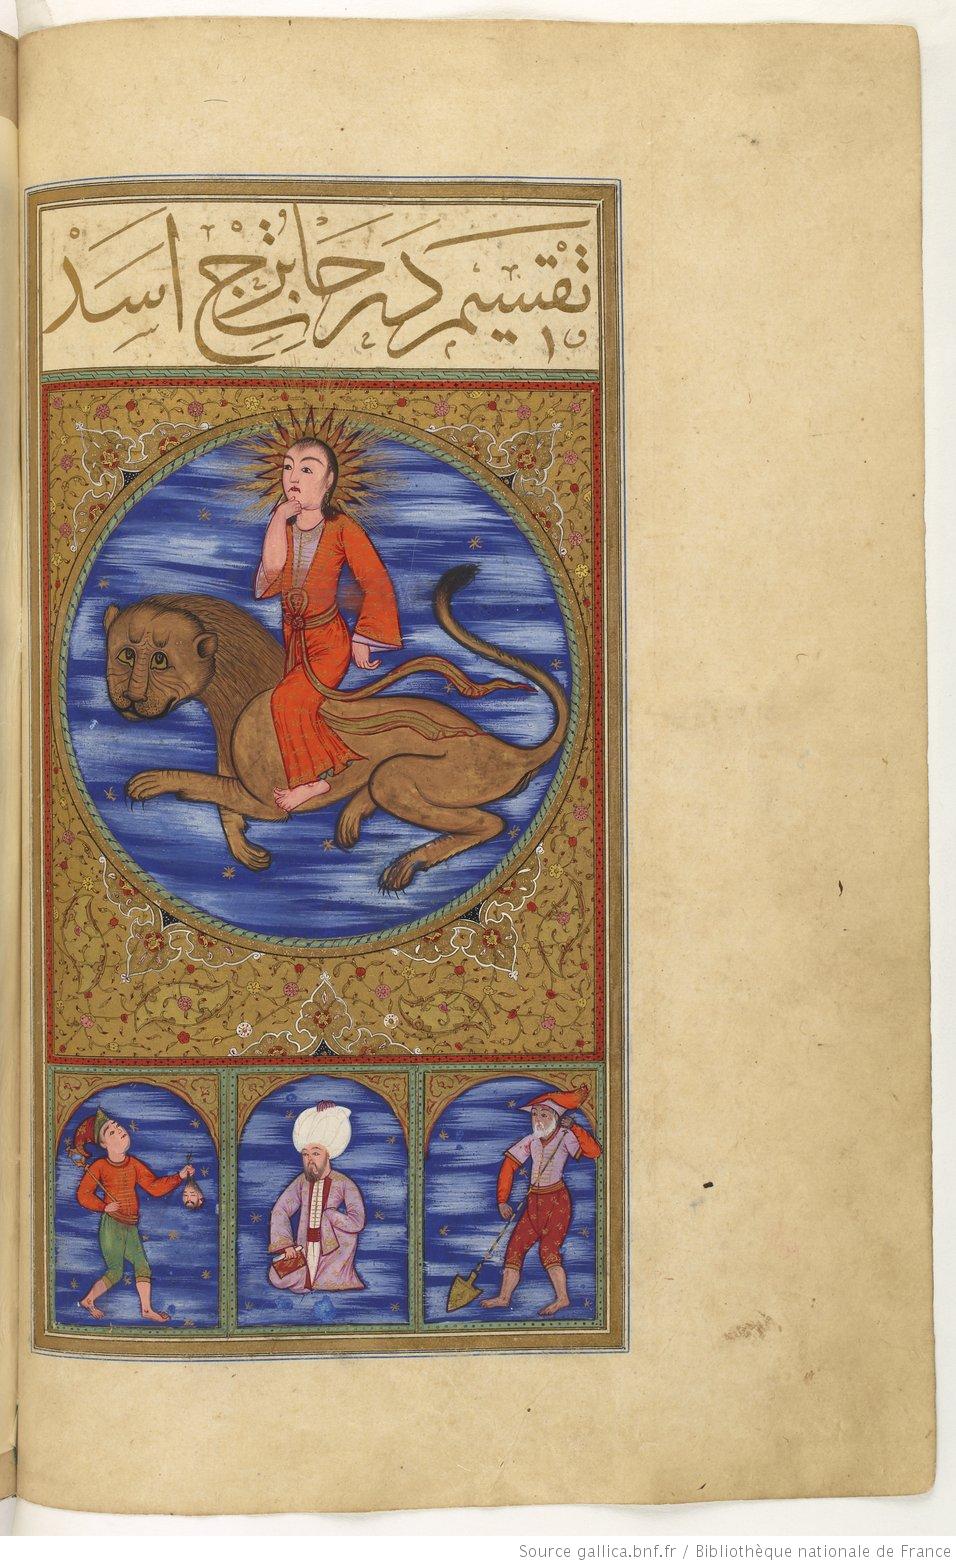 تقسيم درجات برج اسد
Source gallica.bnf.fr / Bibliothèque nationale de France